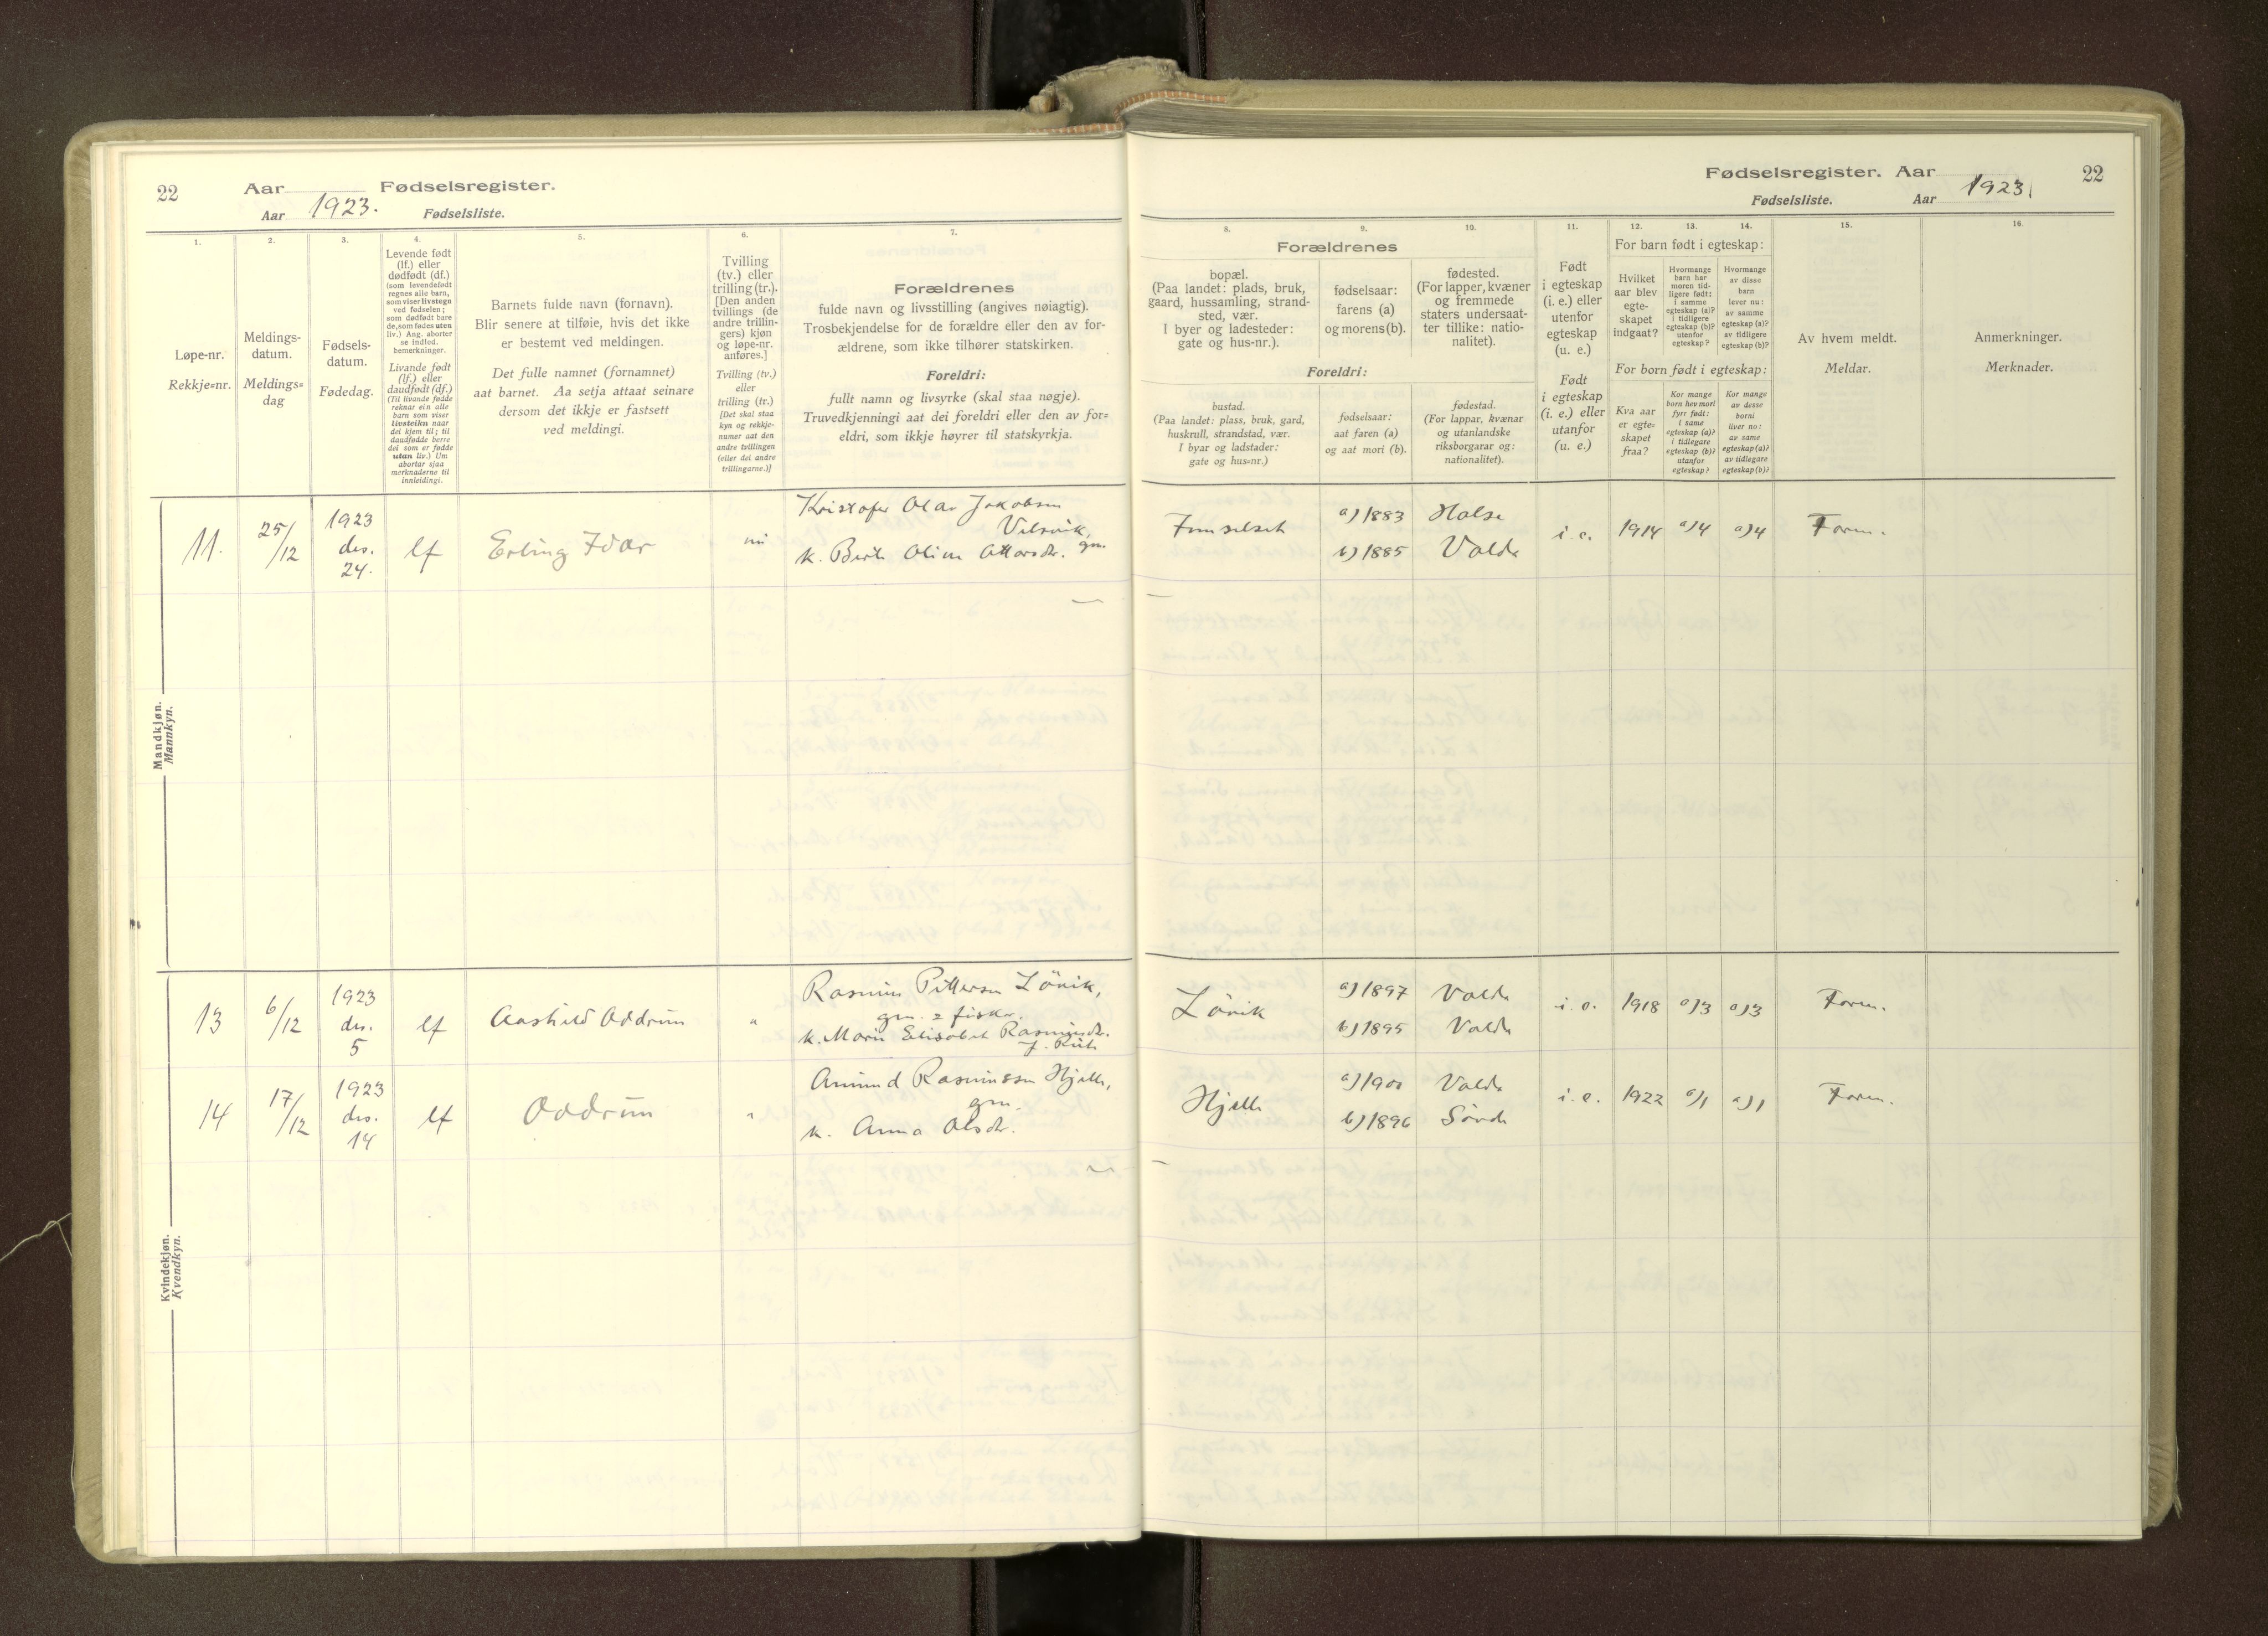 22
Aar
Fødselsregister.
Aar 1923.
Fødselsliste.
1.
Løpe-nr.
Rekkje=nr.
2.
Meldings-
datum.
Meldings=
dag
3.
Fødsels-
datum.
Fødedag.
4.
Levende født
(lf.) eller
dødfødt (df.)
(som levendefødt
regnes alle barn,
som viser livstegn
ved fødselen;
som dødfødt bare
de, som fødes uten
liv.) Ang. aborter
se indled.
bemerkninger.
Livande født
(lf.) eller
daudfødt (df.)
(Til livande fødde
reknar ein alle
barn som viser
livsteikn naar
dei kjem til; til
daudfødde berre
dei som er fødde
utan liv.) Um
abortar sjaa
merknaderne til
innleidingi.
5.
Barnets fulde navn (fornavn).
Blir senere at tilføie, hvis det ikke
er bestemt ved meldingen.
Det fulle namnet (fornamnet)
aat barnet. Aa setja attaat seinare
dersom det ikkje er fastsett
ved meldingi.
6.
Tvilling
(tv.) eller
trilling (tr.).
[Den anden
tvillings (de
andre trillin-
gers) kjøn
og løpe-nr.
anføres.]
Tvilling (tv.)
eller
trilling (tr.)
[Det skal staa
kyn og rekkje-
numer aat den
andre tvillingen
(eller dei andre
trillingarne.)]
7.
Forældrenes
fulde navn og livsstilling (angives nøiagtig).
Trosbekjendelse for de forældre eller den av for-
ældrene, som ikke tilhører statskirken.
Foreldri:
fullt namn og livsyrke (skal staa nøgje).
Truvedkjenningi aat dei foreldri eller den av for=
eldri, som ikkje høyrer til statskyrkja.
Mandkjøn.
Mannkyn.
11.
25/12
1923
des.
24.
lf
Erling Idar
Kristofer Olav Jakobsen
Vilsvik,
gm.
k. Berte Oline Ottarsdr.
13
6/12
1923
des.
5
lf
Aashild Oddrun
"
Rasmus Pettersen Lövik,
gm. & fisker.
k. Marie Elisabet Rasmusdr.
14
17/12
1923
des.
14
lf
Oddrun
"
Amund Rasmussen Hjelle,
gm.
k. Anna Olsdr.
Kvindekjøn.
Kvendkyn.
Fødselsregister. Aar
22
Fødselsliste.
Aar 1923.
Forældrenes
8.
bopæl.
(Paa landet: plads, bruk,
gaard, hussamling, strand-
sted, vær.
I byer og ladesteder:
gate og hus-nr.).
9.
fødselsaar:
farens (a)
og morens (b).
10.
fødested.
(For lapper, kvæner
og fremmede
staters undersaat-
ter tillike: natio-
nalitet).
Foreldri:
bustad.
(Paa landet: plass, bruk, gard,
huskrull, strandstad, vær.
I byar og ladstader:
gate og hus=nr.)
fødselsaar:
aat faren (a)
og aat mori (b).
fødestad.
(For lappar, kvænar
og utanlandske
riksborgarar og:
nationalitet).
11.
Født
i egteskap
(i. e.) eller
utenfor
egteskap
(u. e.)
Født
i egteskap
(i. e.) eller
utanfor
(u. e.)
12.
13.
14.
For barn født i egteskap:
Hvilket
aar blev
egte-
skapet
indgaat?
Hvormange
barn har
moren tid-
ligere født;
i samme
egteskap (a)?
i tidligere
egteskap (b)?
utenfor
egteskap?
Hvormange
av disse
barn
lever nu:
av samme
egteskap (a)?
av tidligere
egteskap (b)?
For born født i egteskap:
Kva aar
er egte=
skapet
fraa?
Kor mange
born hev mori
fyrr født:
i same
egteskap (a)?
i tidlegare
egteskap (b)?
utanfor
egteskap?
Kor mange
av desse
borni
liver no:
av same
egteskap (a)?
av tidlegare
egteskap (b)?
15.
Av hvem meldt.
Meldar.
16.
Anmerkninger.
Merknader.
a) 1883 Halse
b) 1885 Valde
i. e. 1914 a) 4 a) 4 Foren.
Lövik
a) 1897 Valde
b) 1895 Valde
i. e. 1918 a) 3 a) 3 Foren.
Hjelle
a) 1900 Valde
b) 1896 Sövde
i. e. 1922 a) 1 a) 1 Foren.